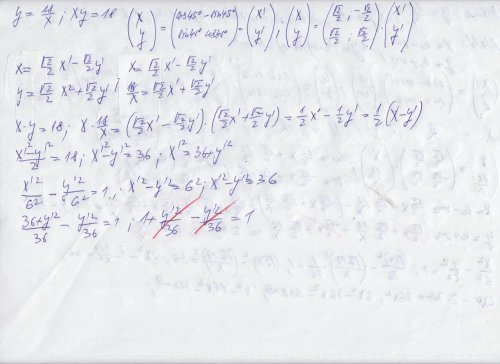 y = 18/x ; xy = 18 (x y) = (cos45° -sin45° sin45° cos45°) · (x' y') ; (x y) = (√2/2, -√2/2 √2/2, √2/2) · (x' y')
x = √2/2 x' - √2/2 y' x = √2/2 x' - √2/2 y'
y = √2/2 x² + √2/2 y' ; 18/x = √2/2 x' + √2/2 y'
x·y = 18 ; x · 18/x = (√2/2 x' - √2/2 y') · (√2/2 x' + √2/2 y') = 1/2 x' - 1/2 y' = 1/2 (x - y')
x'² - y'²/2 = 18 ; x'² - y'² = 36 ; x'² = 36 + y'²
x'²/6² - y'²/6² = 1 ; x'² - y'² = 6² ; x'² - y'² = 36
36 + y'²/36 - y'²/36 = 1 ; 1 + y'²/36 - y'²/36 = 1